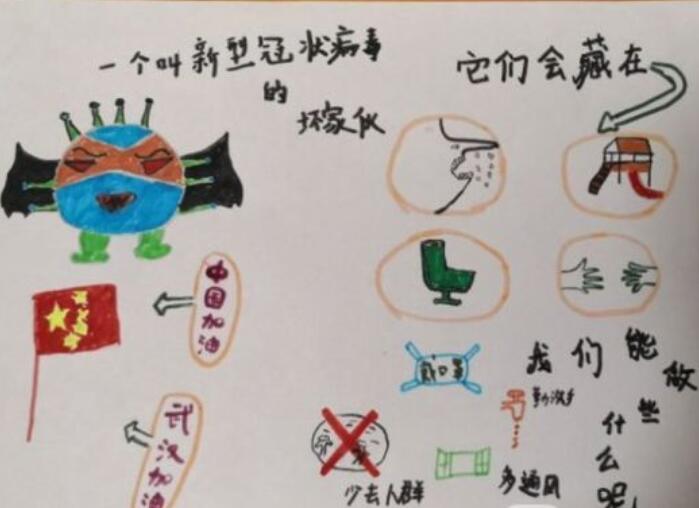 一个叫新型冠状病毒
的
坏家伙
它们会藏在
中国加油
武汉加油
我们能做
些
什么呢
戴口罩
勤洗手
少去人群
多通风